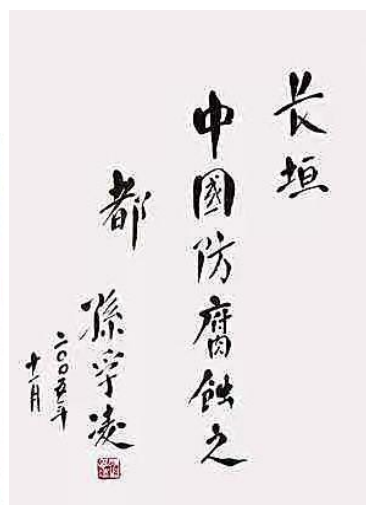 长垣
中國防腐蝕之
都
孫宇凌
二〇〇五年
十一月